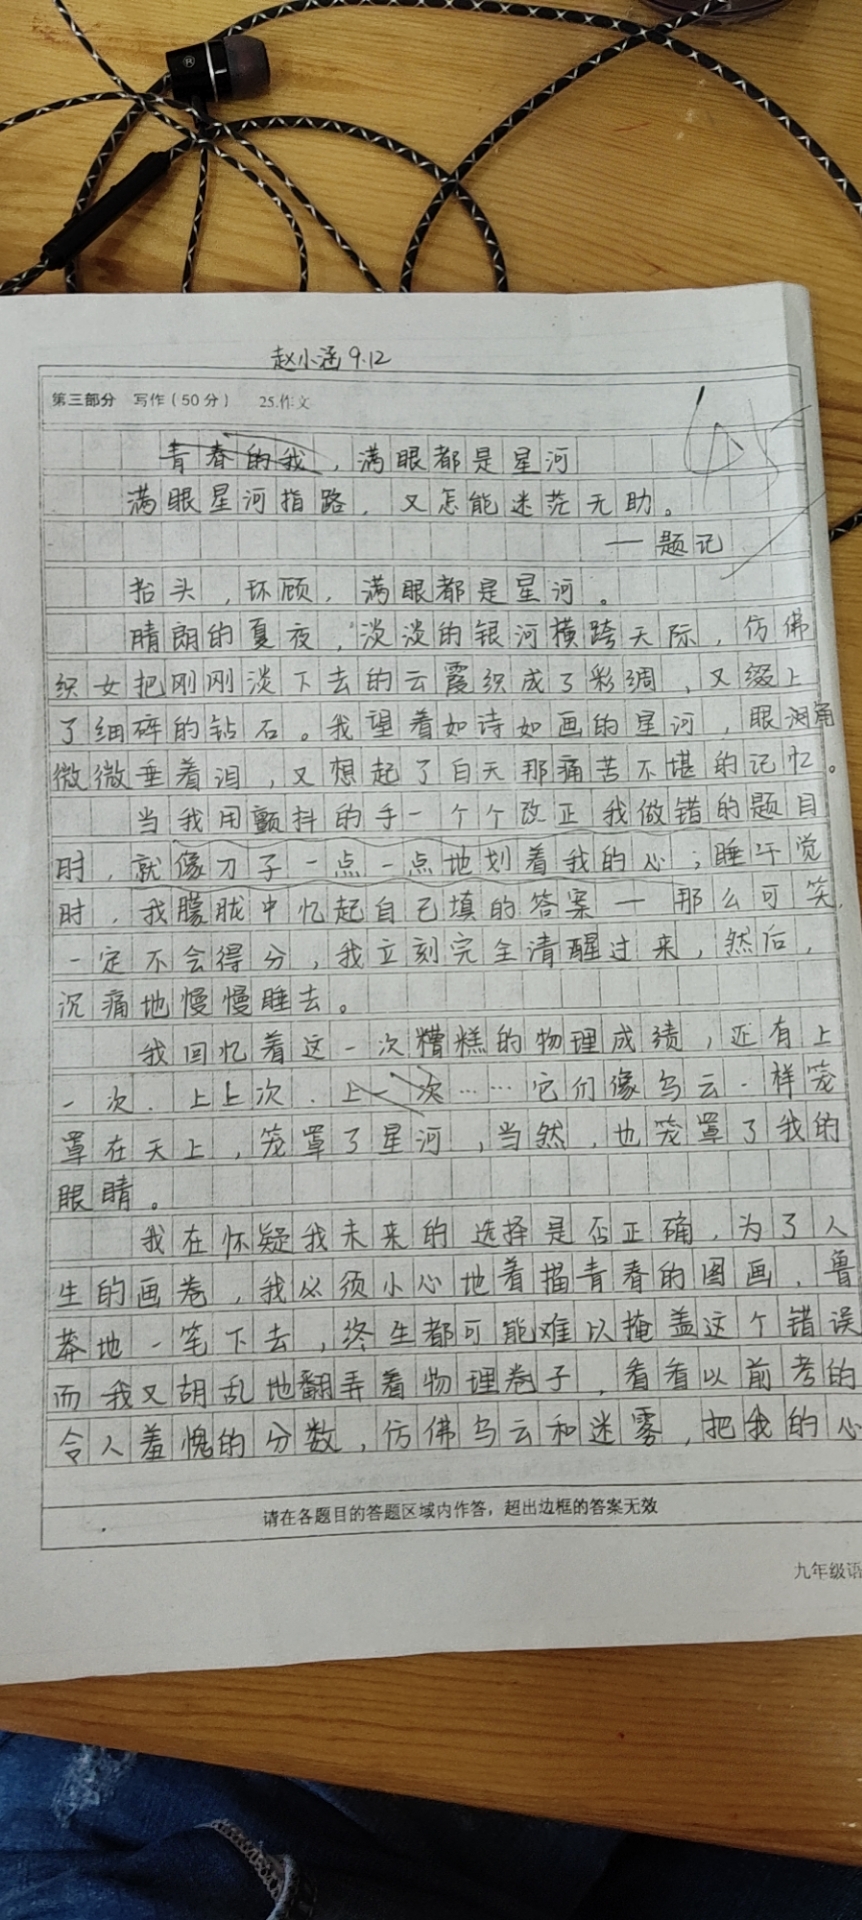 ®
赵小涵 9.12
第三部分 写作(50分) 25.作文
青春的我，满眼都是星河
满眼星河指路，又怎能迷茫无助。
—题记
抬头，环顾，满眼都是星河。
晴朗的夏夜，淡淡的银河横跨天际，仿佛
织女把刚刚淡下去的云霞织成了彩绸，又缀上
了细碎的钻石。我望着如诗如画的星河，眼角
微微垂着泪，又想起了白天那痛苦不堪的记忆。
当我用颤抖的手一个个改正我做错的题目
时，就像刀子一点一点地划着我的心；睡午觉
时，我朦胧中忆起自己填的答案—那么可笑，
一定不会得分，我立刻完全清醒过来，然后，
沉痛地慢慢睡去。
我回忆着这一次糟糕的物理成绩，还有上
一次.上上次.上一次……它们像乌云一样笼
罩在天上，笼罩了星河，当然，也笼罩了我的
眼睛。
我在怀疑我未来的选择是否正确，为了人
生的画卷，我必须小心地着描青春的图画，鲁
莽地一笔下去，终生都可能难以掩盖这个错误
而我又胡乱地翻弄着物理卷子，看看以前考的
令人羞愧的分数，仿佛乌云和迷雾，把我的心
请在各题目的答题区域内作答，超出边框的答案无效
九年级语